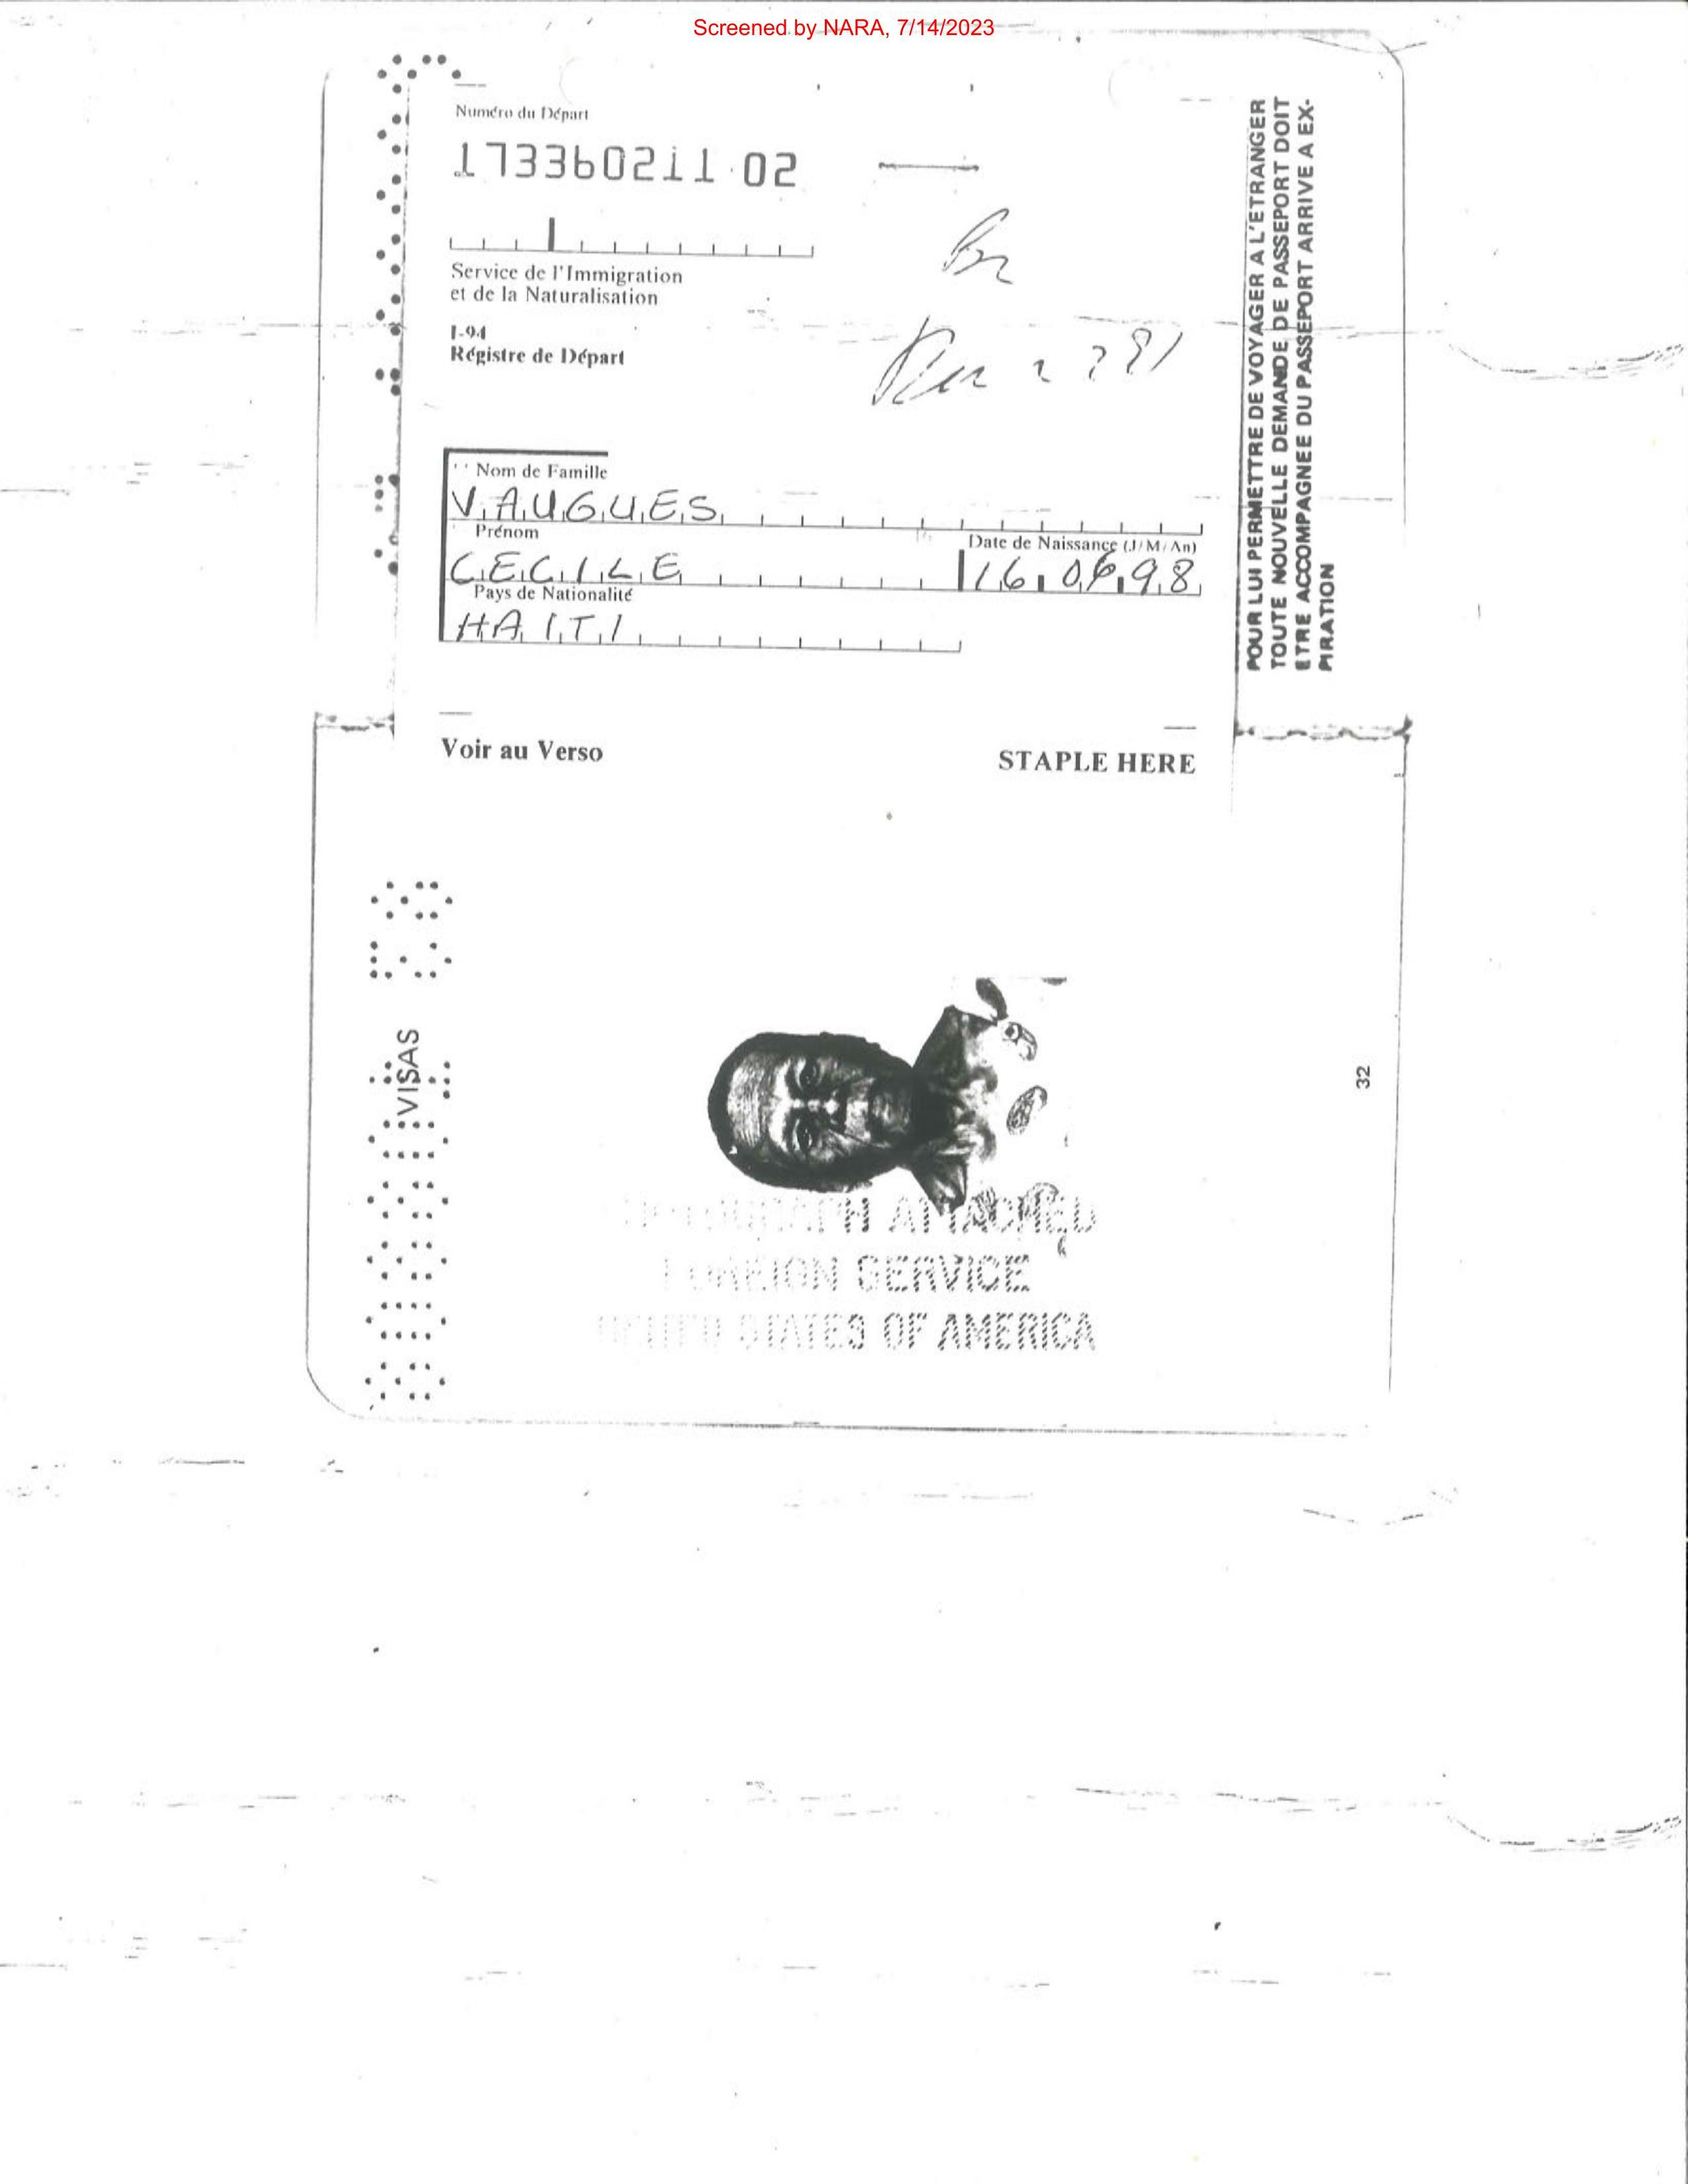 Screened by NARA, 7/14/2023
Numéro du Départ
173360211 02
Service de l'Immigration
et de la Naturalisation
I-94
Régistre de Départ
Nom de Famille
VAUGUES
Prénom
Date de Naissance (J/M/An)
CECILE
16 06 98
Pays de Nationalité
HAITI
Voir au Verso
STAPLE HERE
POUR LUI PERMETTRE DE VOYAGER A L'ETRANGER
TOUTE NOUVELLE DEMANDE DE PASSEPORT DOIT
ETRE ACCOMPAGNEE DU PASSEPORT ARRIVE A EX-
PIRATION
VISAS
32
ATTACHED
FOREIGN SERVICE
UNITED STATES OF AMERICA